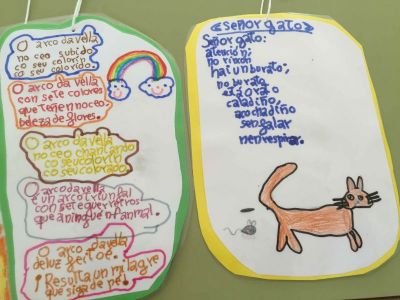 O arco da vella
no ceo subido
co seu colorín
co seu colorido.
O arco da vella
con sete colores
que teñen no ceo
beleza de flores.
O arco da vella
no ceo chantando
co seu colorín
co seu colorado.
O arco da vella
é un arco triunfal
con sete guerreiros
que a ninguén fan mal.
O arco da vella
deluz feito é.
¡Resulta un milagre
que siga de pé!
<Señor gato>
Señor gato:
atención;
no rincón
hai un burato;
no burato
está o rato
caladiño,
acochadiño
sen galar
nen respirar.